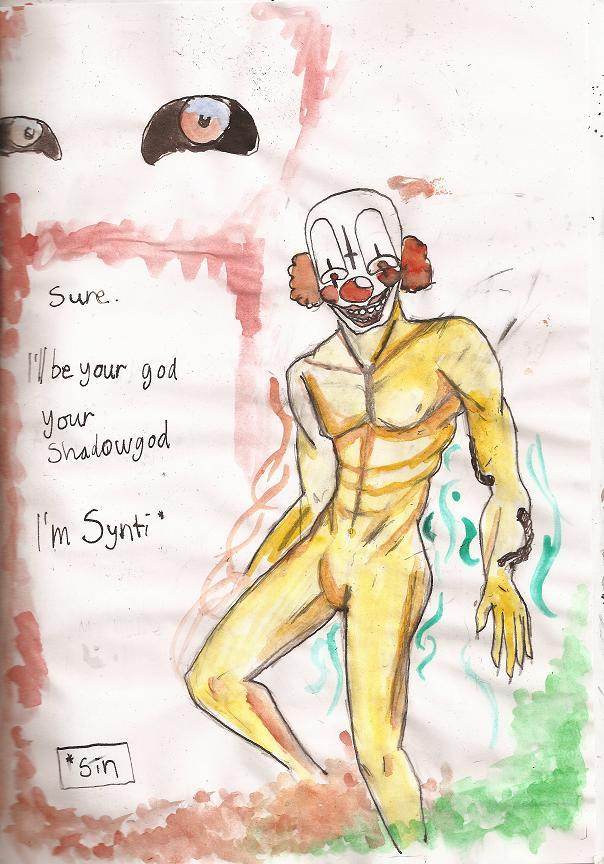 Sure..
I'll be your god
your
Shadowgod
I'm Synti*
*sin